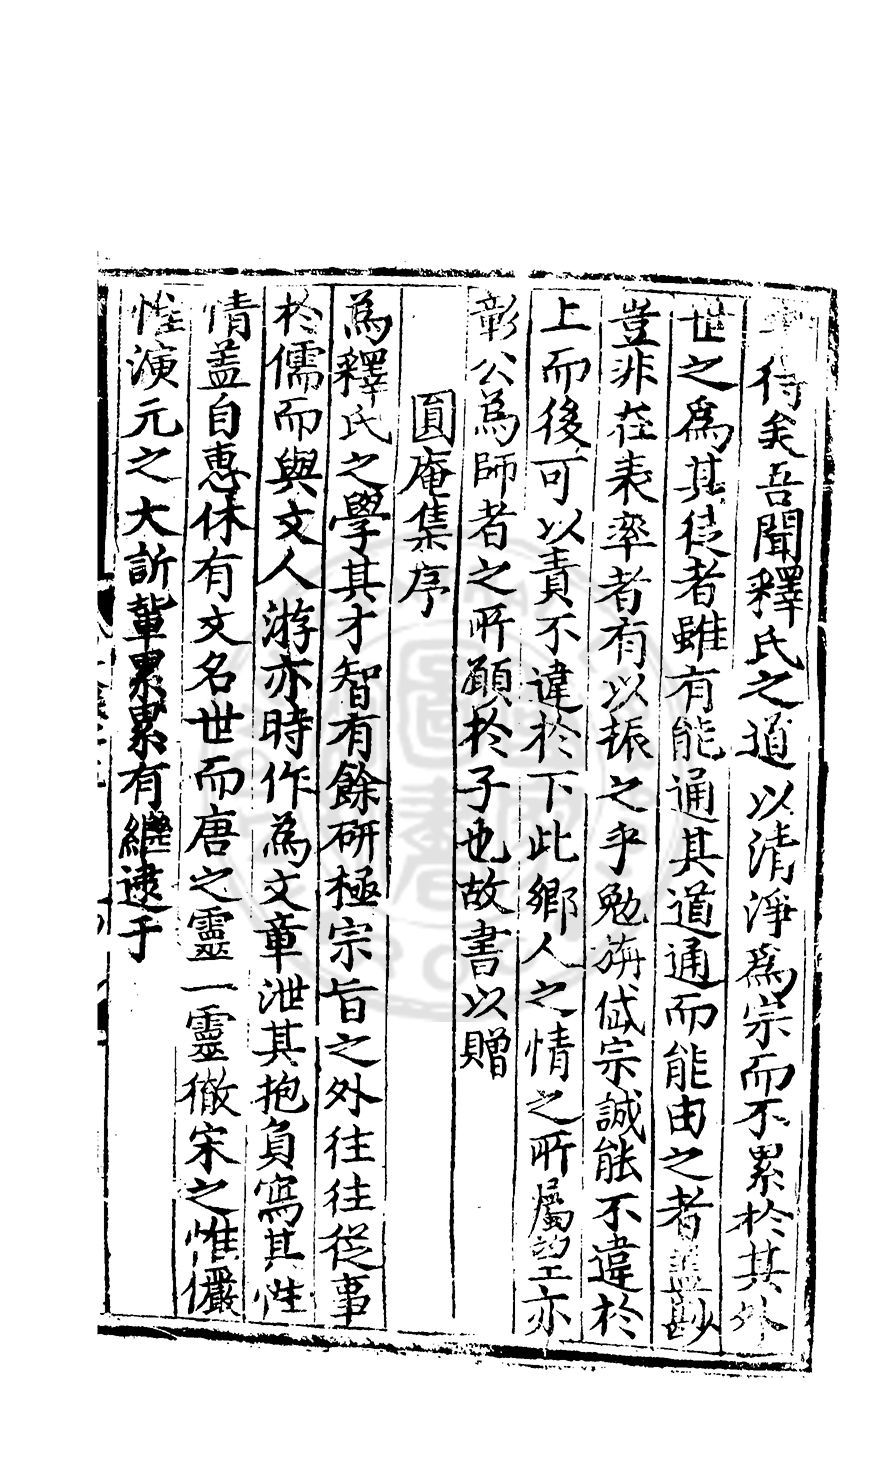 待矣吾聞釋氏之道以清淨爲宗而不累於其外
世之爲其徒者雖有能通其道通而能由之者蓋尠
豈非在表率者有以振之乎勉旃岱宗誠能不違於
上而後可以責不違於下此鄉人之情之所屬望亦
彰公爲師者之所願於子也故書以贈
圓庵集序
爲釋氏之學其才智有餘研極宗旨之外往往從事
於儒而與文人游亦時作爲文章泄其抱負寫其性
情盖自惠休有文名世而唐之靈一靈徹宋之惟儼
惟演元之大訢輩累累有繼逮于